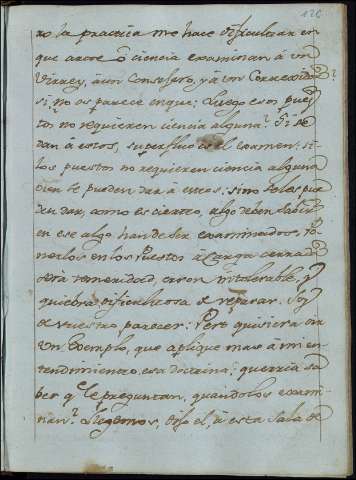 126
ro la practica me hace dificultar en
que arte ô ciencia examinan à un
Virrey, à un Consejero, y à un Corregidor?
si, no os parece en que; luego esos pues
tos no requieren ciencia alguna? Si se
dan a estos, superfluo es el examen; si
los puestos no requieren ciencia alguna
bien le pueden dar à estos; sino seles pue
den dar, como es cierto, algo deben saber
en ese algo han de ser examinados, po
nerlos en los Puestos à Carga cerrada
será temeridad, error intolerable, y
quiebra dificultosa de reparar. Soy
de vuestro parecer: Pero quisiera oir
un Exemplo, que aplique mas à mi en
tendimiento esa Doctrina; querria sa
ber q.e le preguntan, quando los exami
nan? Lleguemos, dijo el, à esta Sala de